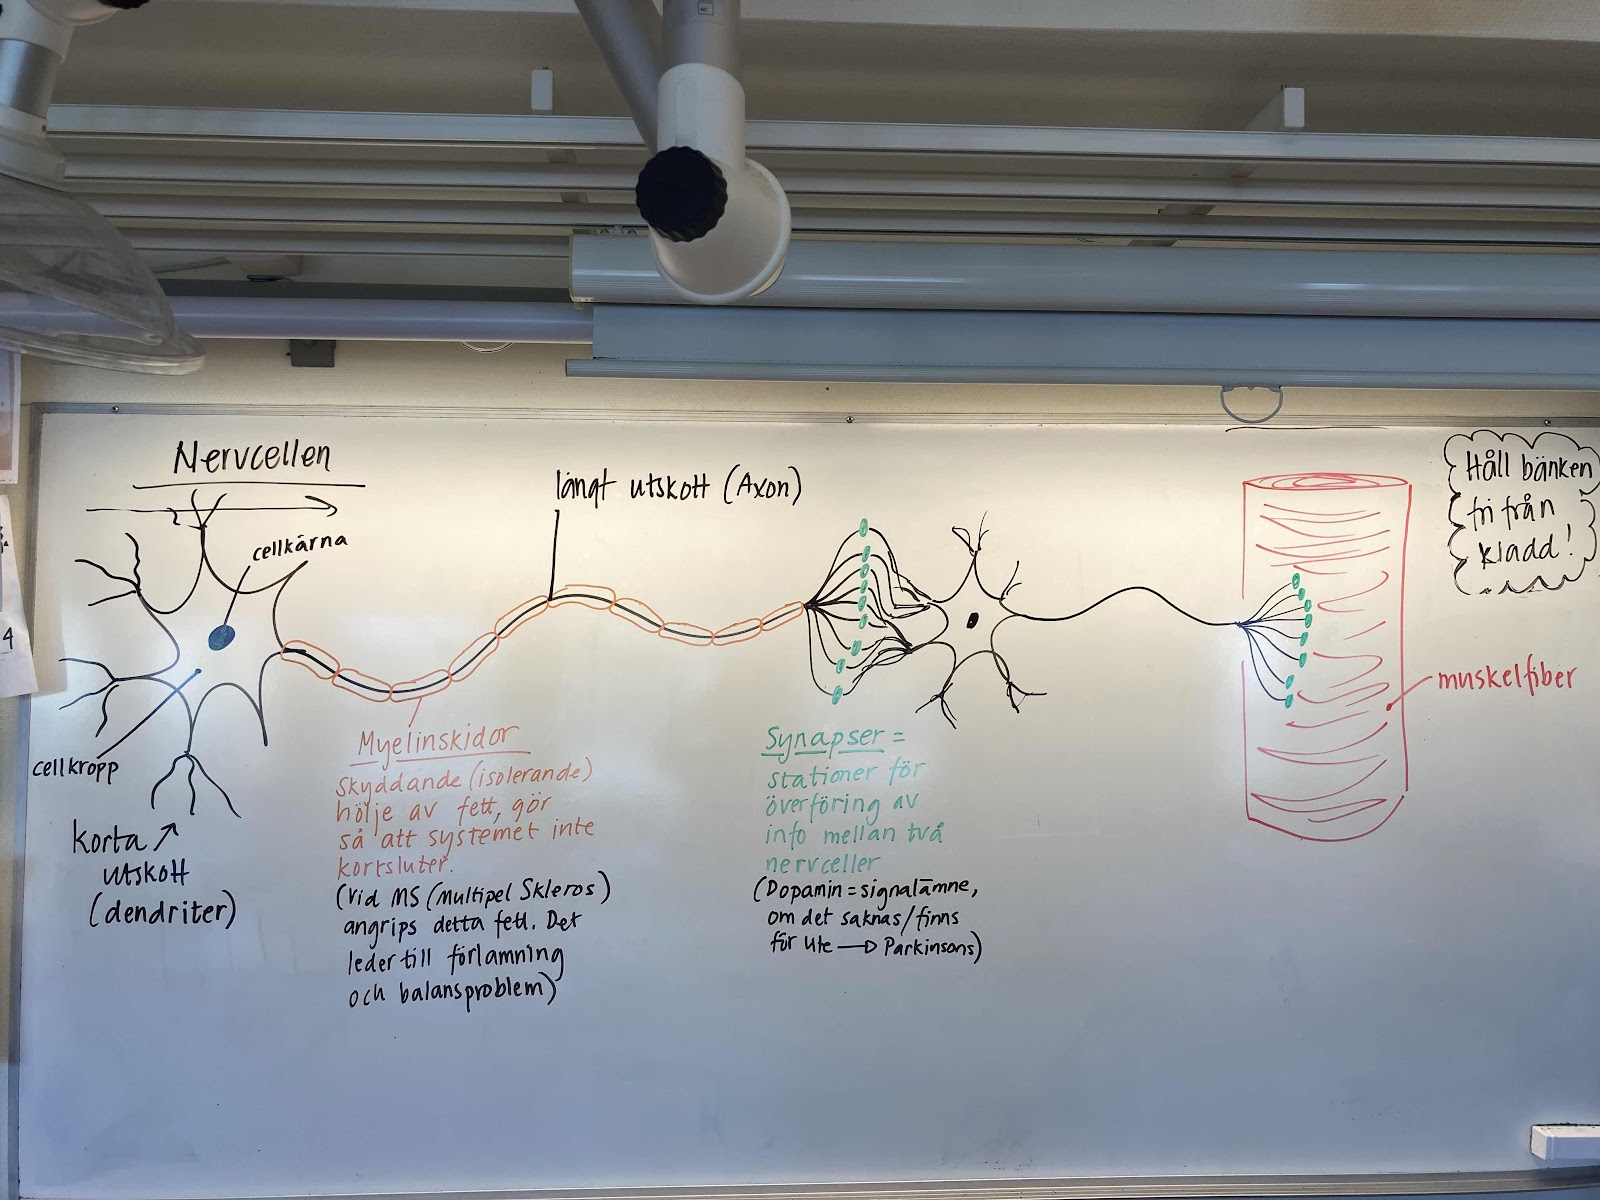 Nervcellen
cellkärna
cellkropp
korta
utskott
(dendriter)
långt utskott (Axon)
Myelinskidor
skyddande (isolerande)
hölje av fett, gör
så att systemet inte
kortsluter.
(vid MS (Multipel Skleros)
angrips detta fett. Det
leder till förlamning
och balansproblem)
Synapser =
stationer för
överföring av
info mellan två
nervceller
(Dopamin = signalämne,
om det saknas/finns
för lite → Parkinsons)
muskelfiber
Håll bänken
fri från
kladd!
4